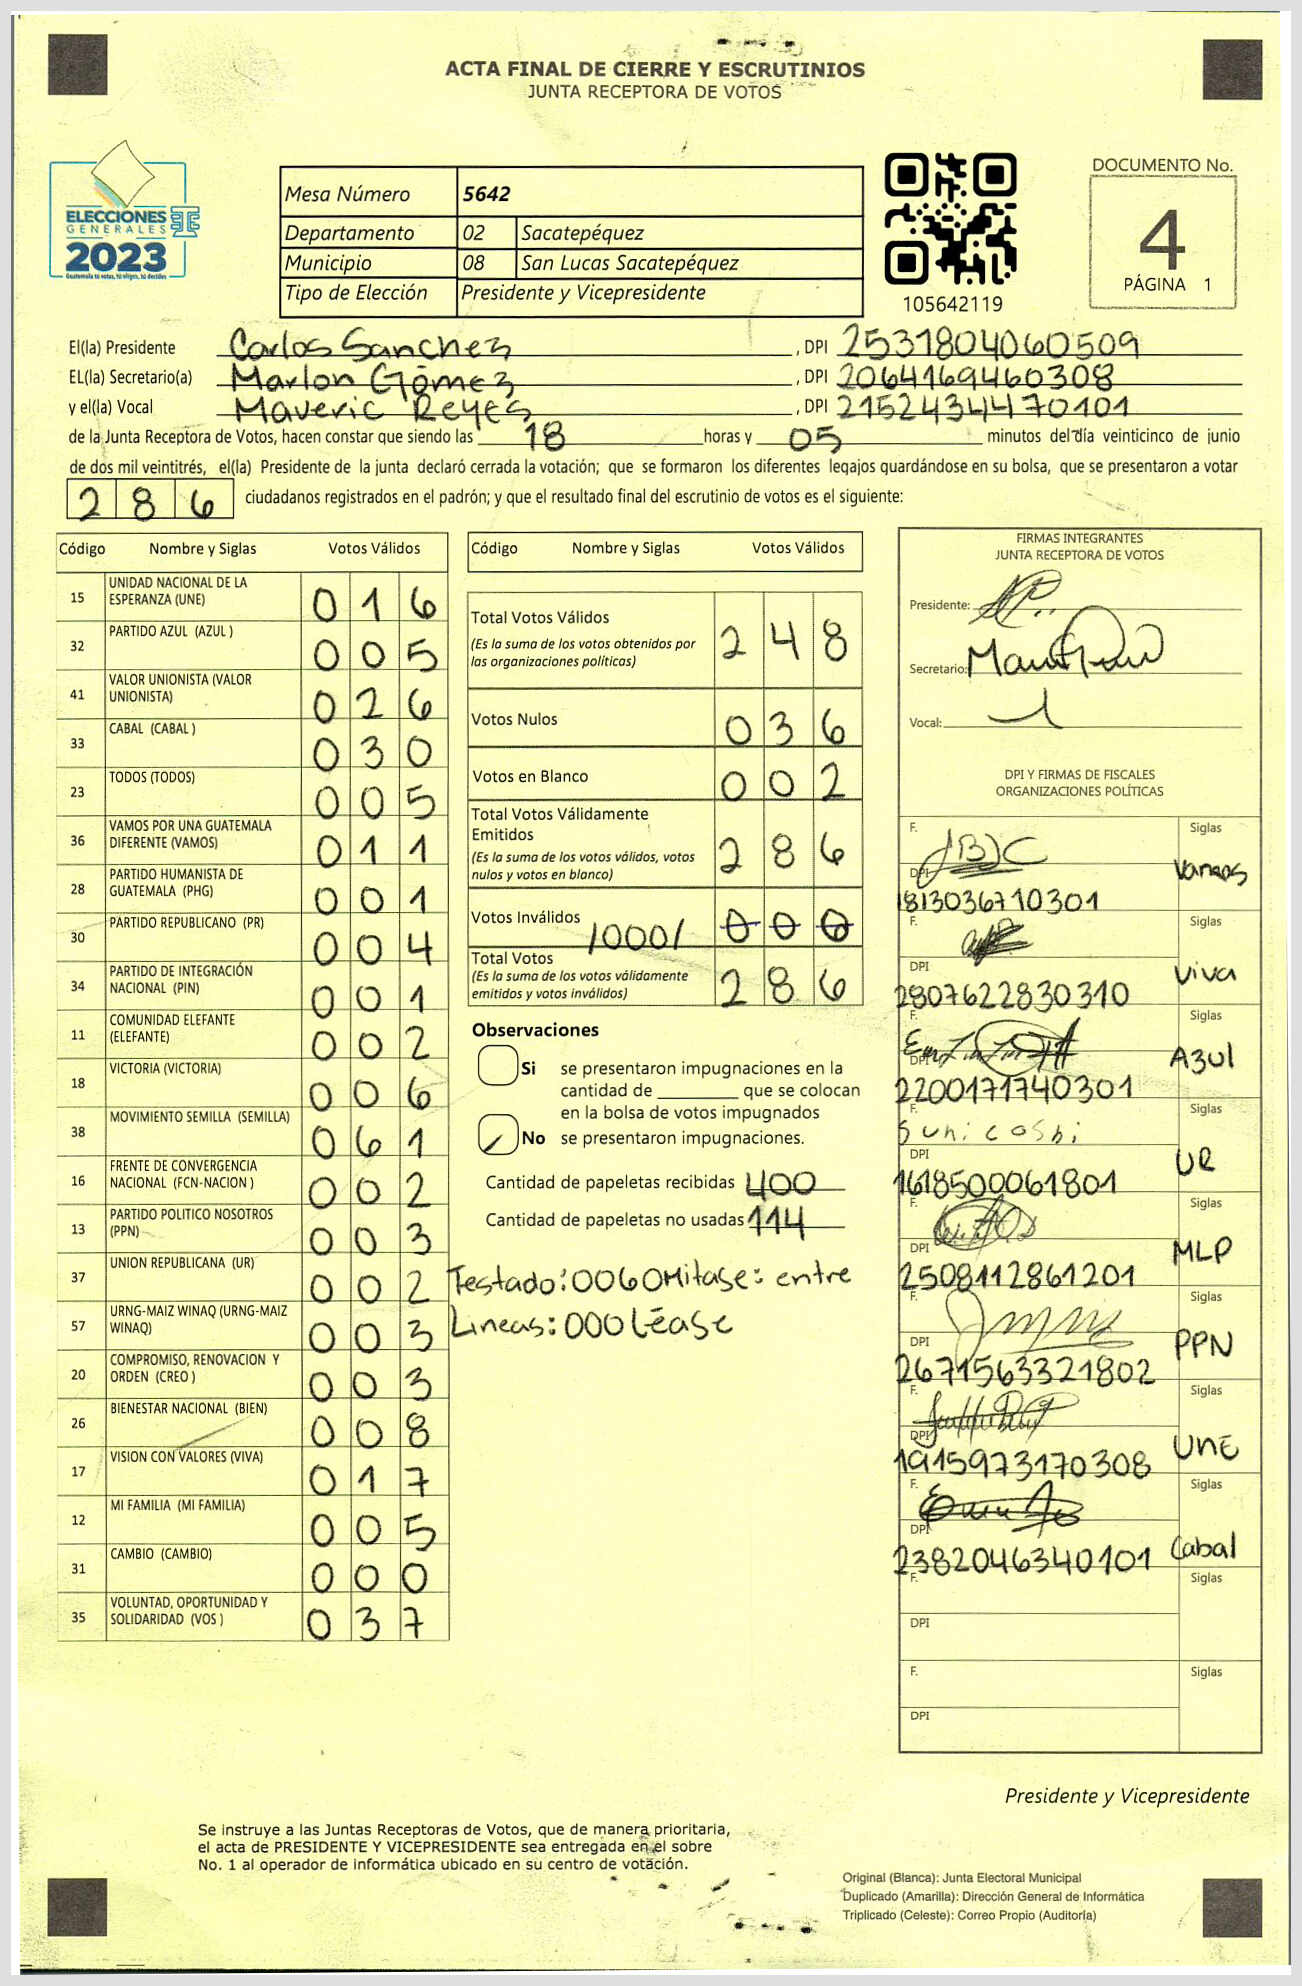 ACTA FINAL DE CIERRE Y ESCRUTINIOS
JUNTA RECEPTORA DE VOTOS
ELECCIONES
GENERALES
2023
Guatemala tú votas, tú eliges, tú decides
Mesa Número 5642
Departamento 02 Sacatepéquez
Municipio 08 San Lucas Sacatepéquez
Tipo de Elección Presidente y Vicepresidente
105642119
DOCUMENTO No.
4
PÁGINA 1
El(la) Presidente Carlos Sanchez , DPI 2531804060509
EL(la) Secretario(a) Marlon Gómez , DPI 2064169460308
y el(la) Vocal Maveric Reyes , DPI 2152434470101
de la Junta Receptora de Votos, hacen constar que siendo las 18 horas y 05 minutos del día veinticinco de junio
de dos mil veintitrés, el(la) Presidente de la junta declaró cerrada la votación; que se formaron los diferentes legajos guardándose en su bolsa, que se presentaron a votar
286 ciudadanos registrados en el padrón; y que el resultado final del escrutinio de votos es el siguiente:
Código Nombre y Siglas Votos Válidos
15 UNIDAD NACIONAL DE LA
ESPERANZA (UNE) 016
32 PARTIDO AZUL (AZUL ) 005
41 VALOR UNIONISTA (VALOR
UNIONISTA) 026
33 CABAL (CABAL ) 030
23 TODOS (TODOS) 005
36 VAMOS POR UNA GUATEMALA
DIFERENTE (VAMOS) 011
28 PARTIDO HUMANISTA DE
GUATEMALA (PHG) 001
30 PARTIDO REPUBLICANO (PR) 004
34 PARTIDO DE INTEGRACIÓN
NACIONAL (PIN) 001
11 COMUNIDAD ELEFANTE
(ELEFANTE) 002
18 VICTORIA (VICTORIA) 006
38 MOVIMIENTO SEMILLA (SEMILLA) 061
16 FRENTE DE CONVERGENCIA
NACIONAL (FCN-NACION ) 002
13 PARTIDO POLITICO NOSOTROS
(PPN) 003
37 UNION REPUBLICANA (UR) 002
57 URNG-MAIZ WINAQ (URNG-MAIZ
WINAQ) 003
20 COMPROMISO, RENOVACION Y
ORDEN (CREO ) 003
26 BIENESTAR NACIONAL (BIEN) 008
17 VISION CON VALORES (VIVA) 017
12 MI FAMILIA (MI FAMILIA) 005
31 CAMBIO (CAMBIO) 000
35 VOLUNTAD, OPORTUNIDAD Y
SOLIDARIDAD (VOS ) 037
Código Nombre y Siglas Votos Válidos
Total Votos Válidos 248
(Es la suma de los votos obtenidos por
las organizaciones políticas)
Votos Nulos 036
Votos en Blanco 002
Total Votos Válidamente
Emitidos 286
(Es la suma de los votos válidos, votos
nulos y votos en blanco)
Votos Inválidos /000/ 000
Total Votos 286
(Es la suma de los votos válidamente
emitidos y votos inválidos)
Observaciones
Si se presentaron impugnaciones en la
cantidad de ________ que se colocan
en la bolsa de votos impugnados
No se presentaron impugnaciones.
Cantidad de papeletas recibidas 400
Cantidad de papeletas no usadas 114
Testado:0060Mitase: entre
Lineas:000Léase
FIRMAS INTEGRANTES
JUNTA RECEPTORA DE VOTOS
Presidente:
Secretario:
Vocal:
DPI Y FIRMAS DE FISCALES
ORGANIZACIONES POLÍTICAS
F. Siglas
DPI Vamos
1813036710301
F. Siglas
DPI Viva
2807622830310
F. Siglas
DPI Azul
2200171740301
F. Siglas
DPI UR
1618500061801
F. Siglas
DPI MLP
2508112861201
F. Siglas
DPI PPN
2671563321802
F. Siglas
DPI UNE
1915973170308
F. Siglas
DPI Cabal
2382046340101
F. Siglas
DPI
F. Siglas
DPI
Presidente y Vicepresidente
Se instruye a las Juntas Receptoras de Votos, que de manera prioritaria,
el acta de PRESIDENTE Y VICEPRESIDENTE sea entregada en el sobre
No. 1 al operador de informática ubicado en su centro de votación.
Original (Blanca): Junta Electoral Municipal
Duplicado (Amarilla): Dirección General de Informática
Triplicado (Celeste): Correo Propio (Auditoría)